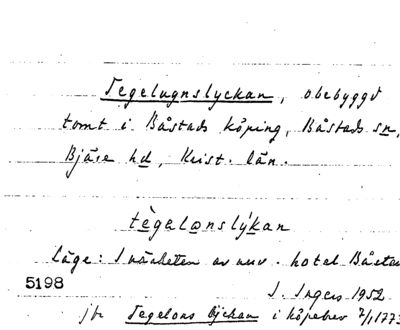 Tegelugnslyckan, obebyggd
tomt i Båstads köping, Båstads sn,
Bjäre hd, Krist. län.
tègelạnslýkan
Läge: I närheten av nuv. hotel Båstad
5198
I. Ingers 1952
jfr Tegelons lyckan i köpebrev 7/1 177